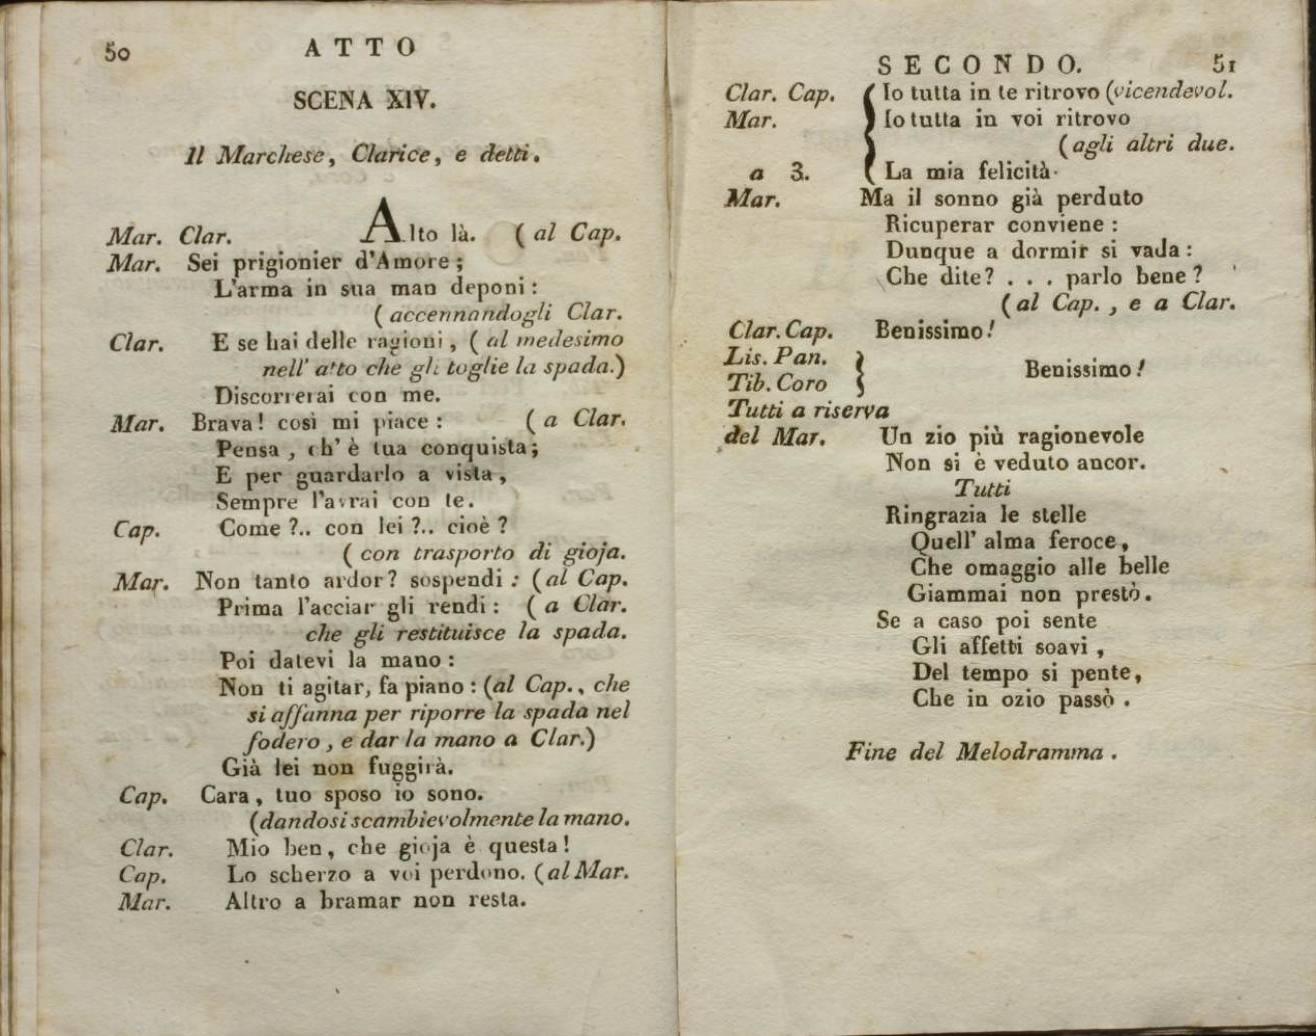 50
ATTO
SCENA XIV.
Il Marchese, Clarice, e detti.
Mar. Clar. Alto là. ( al Cap.
Mar. Sei prigionier d'Amore ;
L'arma in sua man deponi :
( accennandogli Clar.
Clar. E se hai delle ragioni , ( al medesimo
nell' atto che gli toglie la spada.)
Discorrerai con me.
Mar. Brava! così mi piace : ( a Clar.
Pensa , ch' è tua conquista;
E per guardarlo a vista ,
Sempre l'avrai con te.
Cap. Come ?.. con lei ?.. cioè ?
( con trasporto di gioja.
Mar. Non tanto ardor? sospendi : (al Cap.
Prima l'acciar gli rendi : ( a Clar.
che gli restituisce la spada.
Poi datevi la mano :
Non ti agitar, fa piano : (al Cap., che
si affanna per riporre la spada nel
fodero , e dar la mano a Clar.)
Già lei non fuggirà.
Cap. Cara , tuo sposo io sono.
(dandosi scambievolmente la mano.
Clar. Mio ben, che gioja è questa!
Cap. Lo scherzo a voi perdono. (al Mar.
Mar. Altro a bramar non resta.
SECONDO. 51
Clar. Cap. Io tutta in te ritrovo (vicendevol.
Mar. Io tutta in voi ritrovo
( agli altri due.
a 3. La mia felicità.
Mar. Ma il sonno già perduto
Ricuperar conviene :
Dunque a dormir si vada :
Che dite? . . . parlo bene ?
(al Cap. , e a Clar.
Clar. Cap. Benissimo!
Lis. Pan.
Tib. Coro Benissimo!
Tutti a riserva
del Mar. Un zio più ragionevole
Non si è veduto ancor.
Tutti
Ringrazia le stelle
Quell' alma feroce ,
Che omaggio alle belle
Giammai non prestò.
Se a caso poi sente
Gli affetti soavi ,
Del tempo si pente,
Che in ozio passò .
Fine del Melodramma .